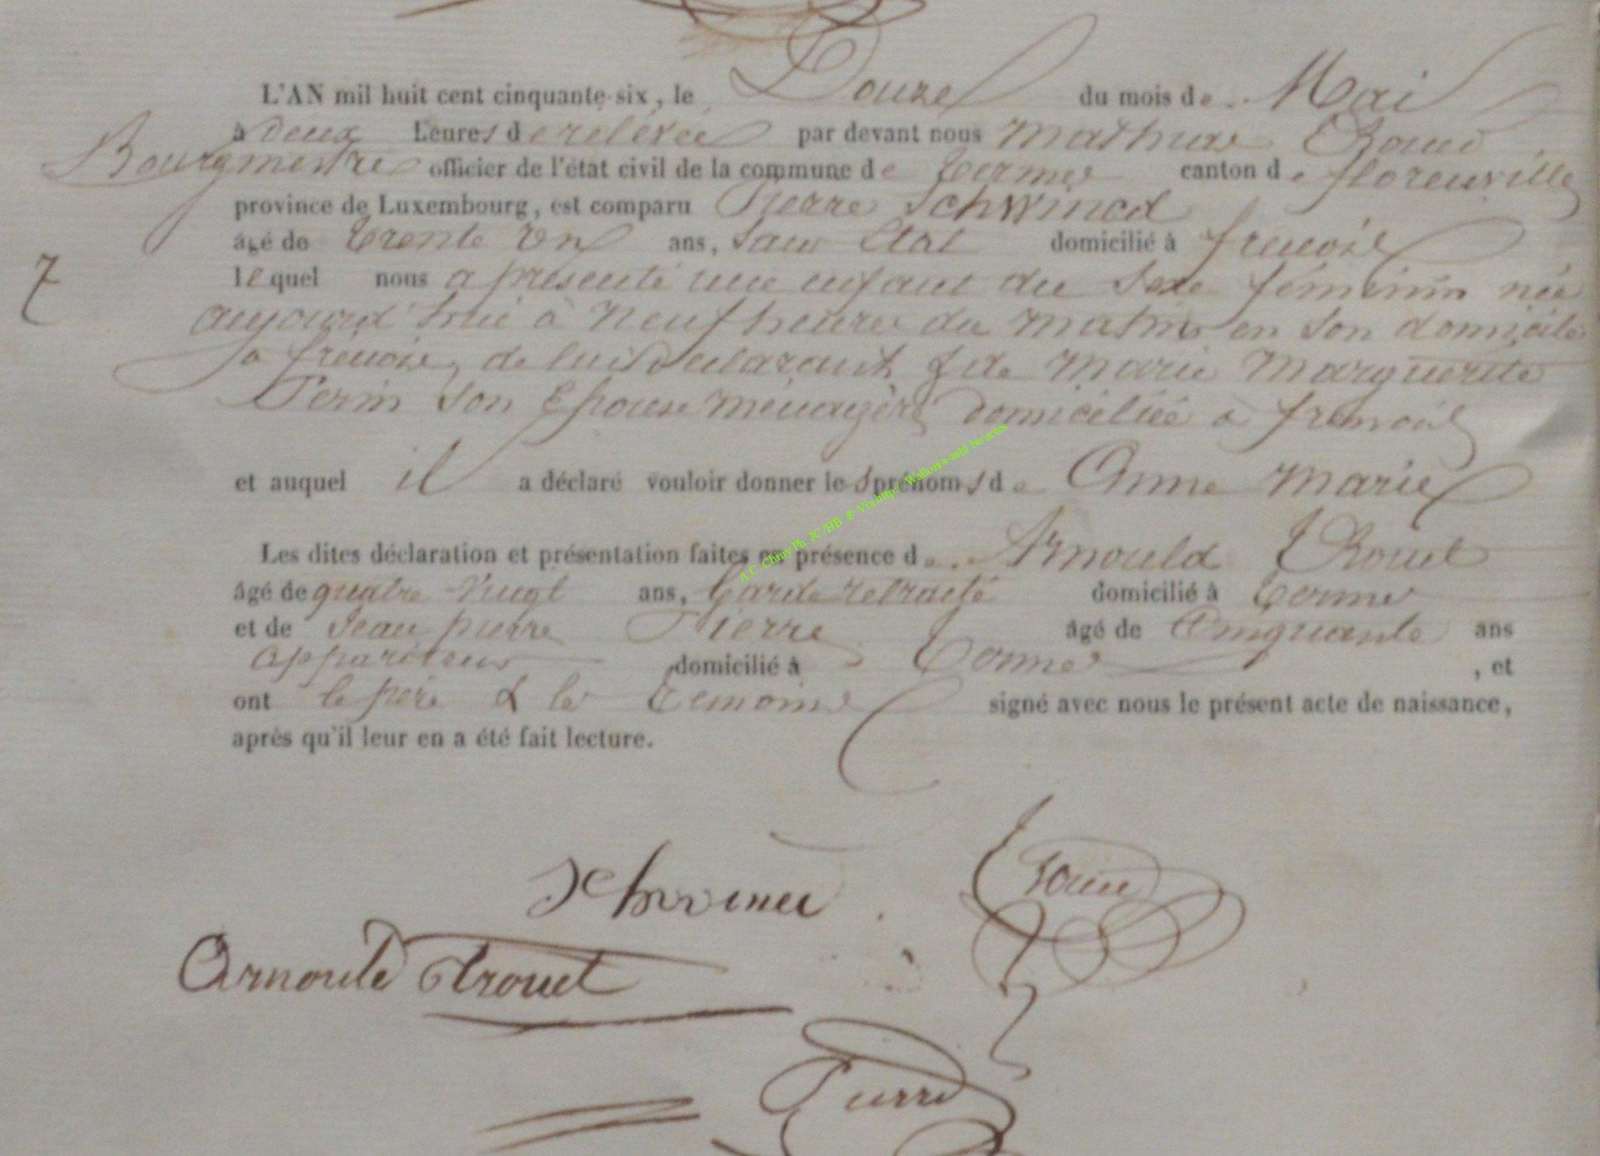 L'AN mil huit cent cinquante-six, le Douze du mois de Mai
à deux heures de relevée par devant nous Mathieu
Bourgmestre officier de l'état civil de la commune de Termes canton de florenville
province de Luxembourg, est comparu Pierre Schwined
âgé de trente un ans, sans État domicilié à frenois
7
lequel nous a présenté une enfant du sexe féminin née
aujourd'hui à neuf heures du matin en son domicile
à frenois, de lui Déclarant & de Marie Marguerite
Perin son Epouse ménagère domiciliée à frenois
et auquel il a déclaré vouloir donner les prénoms de Anne Marie
Les dites déclaration et présentation faites en présence de Arnould Trouet
âgé de quatre Vingt ans, Garde retraité domicilié à Termes
et de Jean pierre Pierre âgé de Cinquante ans
appariteur domicilié à Termes, et
ont le père & les temoins signé avec nous le présent acte de naissance,
après qu'il leur en a été fait lecture.
Arnould trouet
Pierre